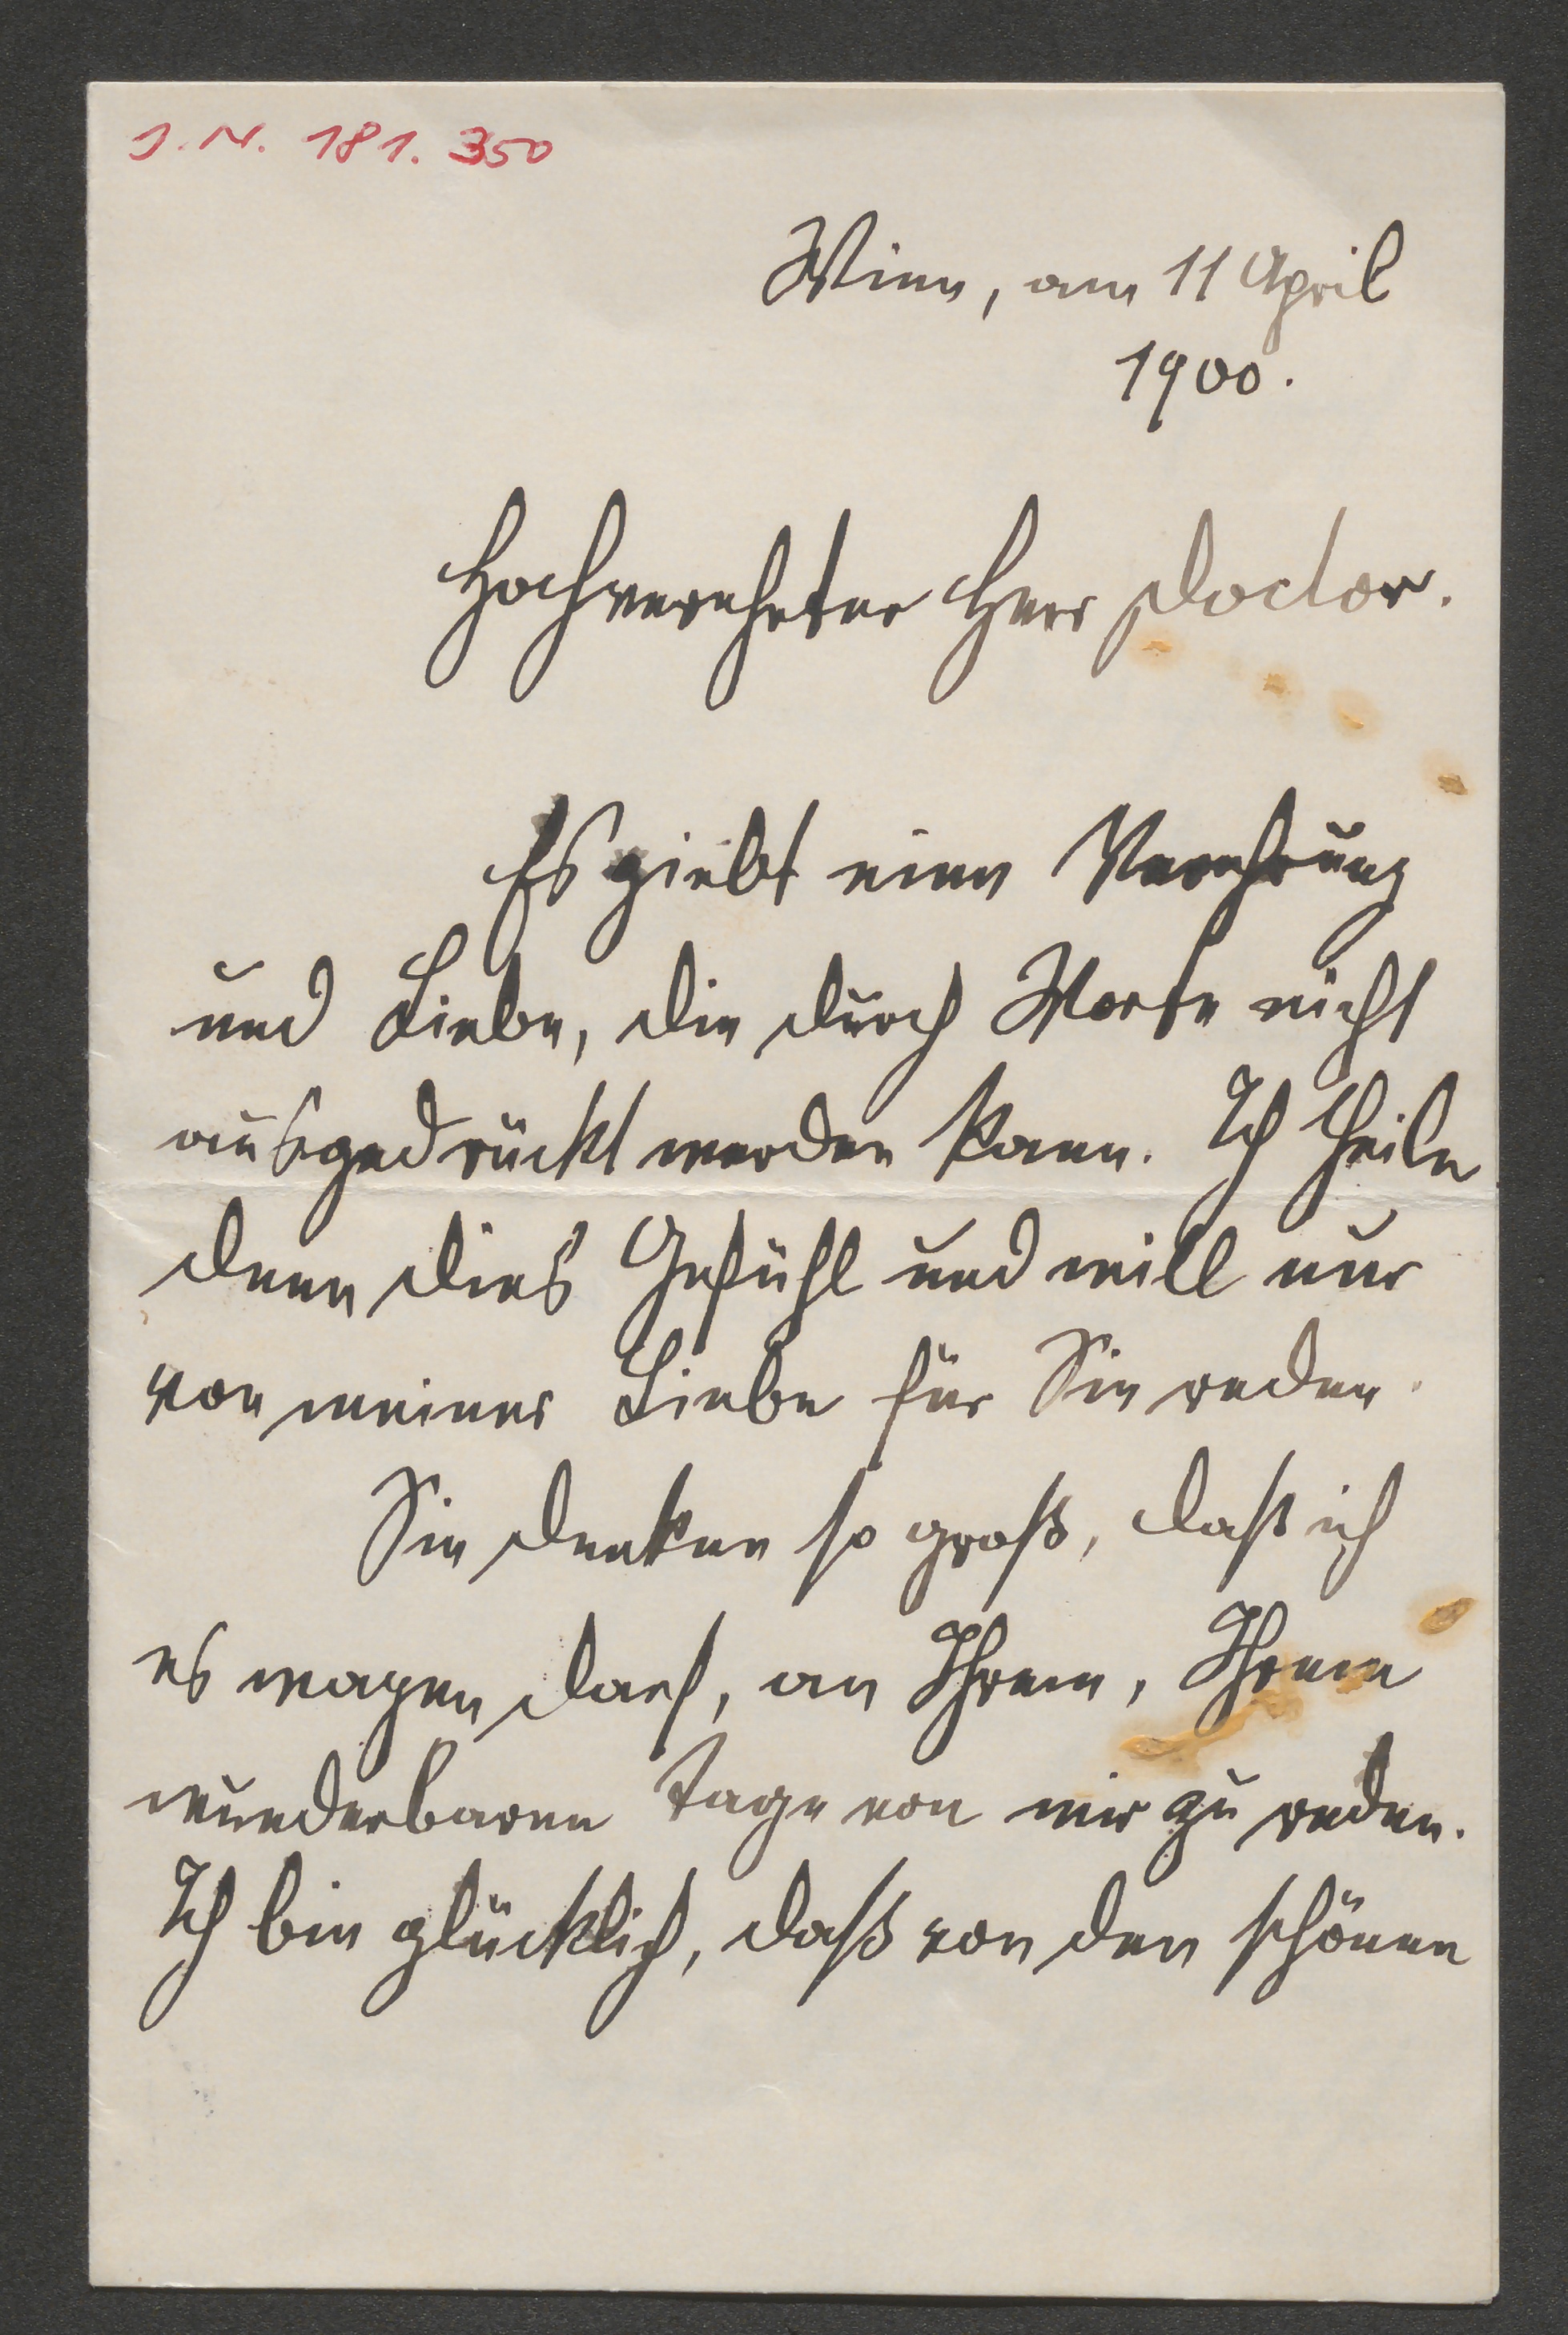 J. N. 181. 350
Wien, am 11 April
1900.
Hochverehrter Herr Doctor.
Es giebt eine Verehrung
und Liebe, die durch Worte nicht
ausgedrückt werden kann. Ich theile
denn dies Gefühl und will nur
von meiner Liebe für Sie reden.
Sie denken so groß, daß ich
es wagen darf, an Ihrem, Ihrem
wunderbaren Tage von mir zu reden.
Ich bin glücklich, daß von den schönen